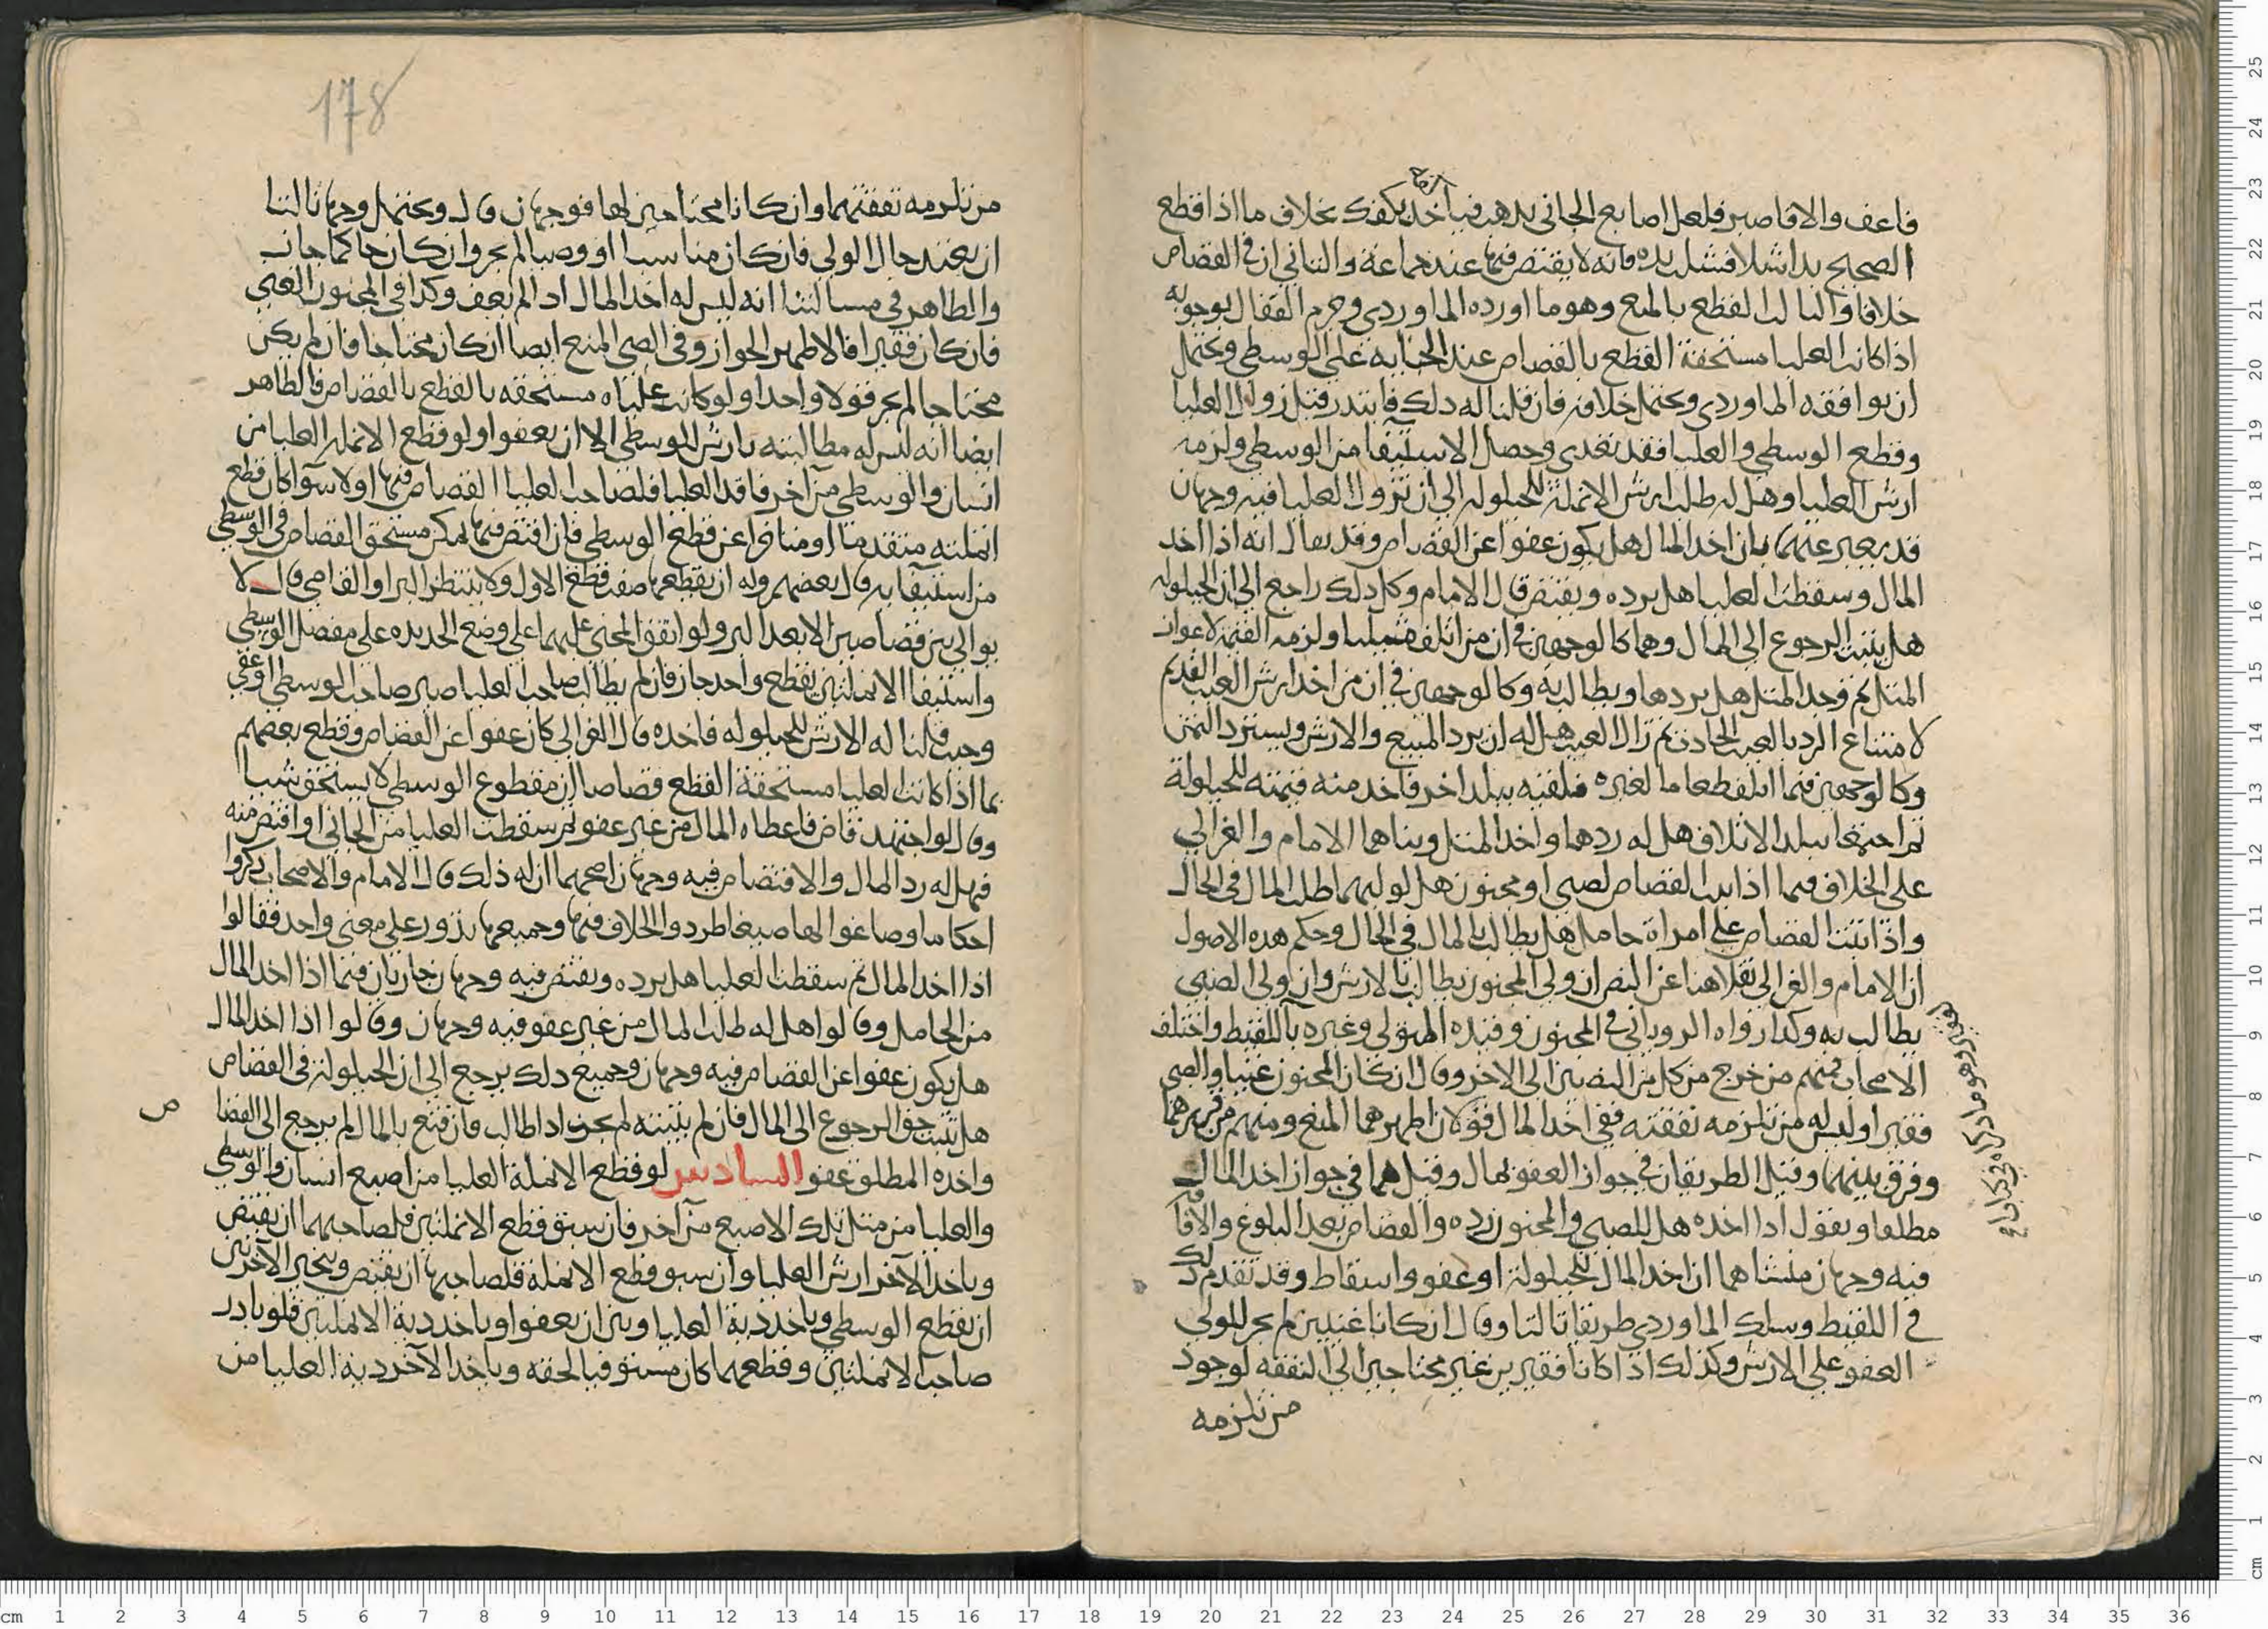 فاعف والا فاصبر فلعل اصابع الجاني تذهب فيأخذ بكفك بخلاف ما اذا قطع
الصحيح يدا شلا فشلت يده فانه لا يقتص فيها عند جماعة والثاني ان في القصاص
خلافا والثالث القطع بالمنع وهو ما اورده الماوردي وجزم القفال بوجوبه
اذا كانت العليا مستحقة القطع بالقصاص عند الجناية على الوسطى ويحتمل
ان يوافقه الماوردي ويحتمل خلافه فان قلنا له ذلك فابتدر قبل زوال العليا
وقطع الوسطى والعليا فقد تعدى وحصل الاستيفا من الوسطى ولزمه
ارش العليا وهل له طلب ارش الانملة للحيلولة الى ان تزول العليا فيه وجهان
قد يعبر عنهما بان اخذ المال هل يكون عفوا عن القصاص وقد يقال انه اذا اخذ
المال وسقطت العليا هل يرده ويقتص قال الامام وكل ذلك راجع الى ان الحيلولة
هل يثبت الرجوع الى المال وهما كالوجهين في ان من اتلف مثليا ولزمه القيمة لاعواز
المثل ثم وجد المثل هل يردها ويطالب به وكالوجهين في ان من اخذ ارش العيب القديم
لامتناع الرد بالعيب الحادث ثم زال العيب هل له ان يرد المبيع والارش ويسترد الثمن
وكالوجهين فيما اتلف طعاما لغيره فلقيه ببلد اخر فاخذ منه قيمته للحيلولة
ثم اجتمعا ببلد الاتلاف هل له ردها واخذ المثل وبناهما الامام والغزالي
على الخلاف فيما اذا ثبت القصاص لصبي او مجنون هل لوليهما طلب المال في الحال
واذا ثبت القصاص على امراة حامل هل يطالب بالمال في الحال وحكم هذه الاصول
ان الامام والغزالي نقلا هنا عن النص ان ولي المجنون يطالب بالارش وان ولي الصبي
يطالب به وكذا رواه الروياني في المجنون وقيده المتولي وغيره باللقيط واختلف
الاصحاب فمنهم من خرج من كل من النصين الى الاخر وقال ان كان المجنون غنيا والصبي
فقيرا وليس له من تلزمه نفقته ففي اخذ المال قولان اظهرهما المنع ومنهم من قررهما
وفرق بينهما وقيل الطريقان في جواز العفو بمال وقيل هما في جواز اخذ المال
مطلقا ويقول اذا اخذه هل للصبي والمجنون رده والقصاص بعد البلوغ والافا
فيه وجهان منشاهما ان اخذ المال للحيلولة او عفو واسقاط وقد تقدم ذلك
في اللقيط وسلك الماوردي طريقا ثالثا وقال ان كانا غنيين لم يجز للولي
العفو على الارش وكذلك اذا كانا فقيرين غير محتاجين الى النفقة لوجود
من تلزمه
178
من تلزمه نفقتهما وان كانا محتاجين لها فوجهان قال ويحتمل وجها ثالثا
ان يعتبر حال الولي فان كان مناسبا او وصيا لم يجز وان كان حاكما جاز
والظاهر في مسالتنا انه ليس له اخذ المال اذا لم يعف وكذا في المجنون الغني
فان كان فقيرا فالاظهر الجواز وفي الصبي المنع ايضا ان كان محتاجا فان لم يكن
محتاجا لم يجز قولا واحدا ولو كانت علياه مستحقه بالقطع بالقصاص فالظاهر
ايضا انه ليس له مطالبته بارش الوسطى الا ان يعفو ولو قطع الانملة العليا من
انسان والوسطى من آخر فاقد العليا فلصاحب العليا القصاص فيها اولا سوآ كان قطع
انملته متقدما او متاخرا عن قطع الوسطى فان اقتص فيها يمكن مستحق القصاص في الوسطى
من استيفايه قال بعضهم وله ان يقطعها صف قطع الاول ولا ينتظر البرا والقاضي قال لا
يوالي بين قصاصين الا بعد البر ولو اتفق المجني عليهما على وضع الحديده على مفصل الوسطى
واستيفا الانملتين بقطع واحد جاز فان لم يطالب صاحب العليا صبر صاحب الوسطى او عفى
وحيث قلنا له الارش للحيلولة فاخذه قال الغزالي كان عفوا عن القصاص وقطع بعضهم
بما اذا كانت العليا مستحقة القطع قصاصا ان مقطوع الوسطى لا يستحق شيا
وقال لو اجتهد قاض فاعطاه المال من غير عفو ثم سقطت العليا من الجاني او اقتص منه
فهل له رد المال والاقتصاص فيه وجهان اصحهما ان له ذلك قال الامام والاصحاب ذكروا
احكاما وصاغوا لها صيغا اطردوا الخلاف فيها وجميعها يدور على معنى واحد فقالوا
اذا اخذ المال ثم سقطت العليا هل يرده ويقتص فيه وجهان جاريان فيما اذا اخذ المال
من الحامل وقالوا هل له طلب المال من غير عفو فيه وجهان وقالوا اذا اخذ المال
هل يكون عفوا عن القصاص فيه وجهان وجميع ذلك يرجع الى ان الحيلولة في القصاص
هل تثبت حق الرجوع الى المال فان لم يثبته لم يجز اذا طالب فان قنع بالمال لم يرجع الى القصا
ص
واخذه المطلق عفو السادس لو قطع الانملة العليا من اصبع انسان والوسطى
والعليا من مثل تلك الاصبع من آخر فان سبق قطع الانملتين فلصاحبهما ان يقتص
وياخذ الآخر ارش العليا وان سبق قطع الانملة فلصاحبها ان يقتص ويتخير الآخر بين
ان يقطع الوسطى وياخذ دية العليا وبين ان يعفو وياخذ دية الانملتين فلو بادر
صاحب الانملتين وقطعهما كان مستوفيا لحقه وياخذ الآخر دية العليا من